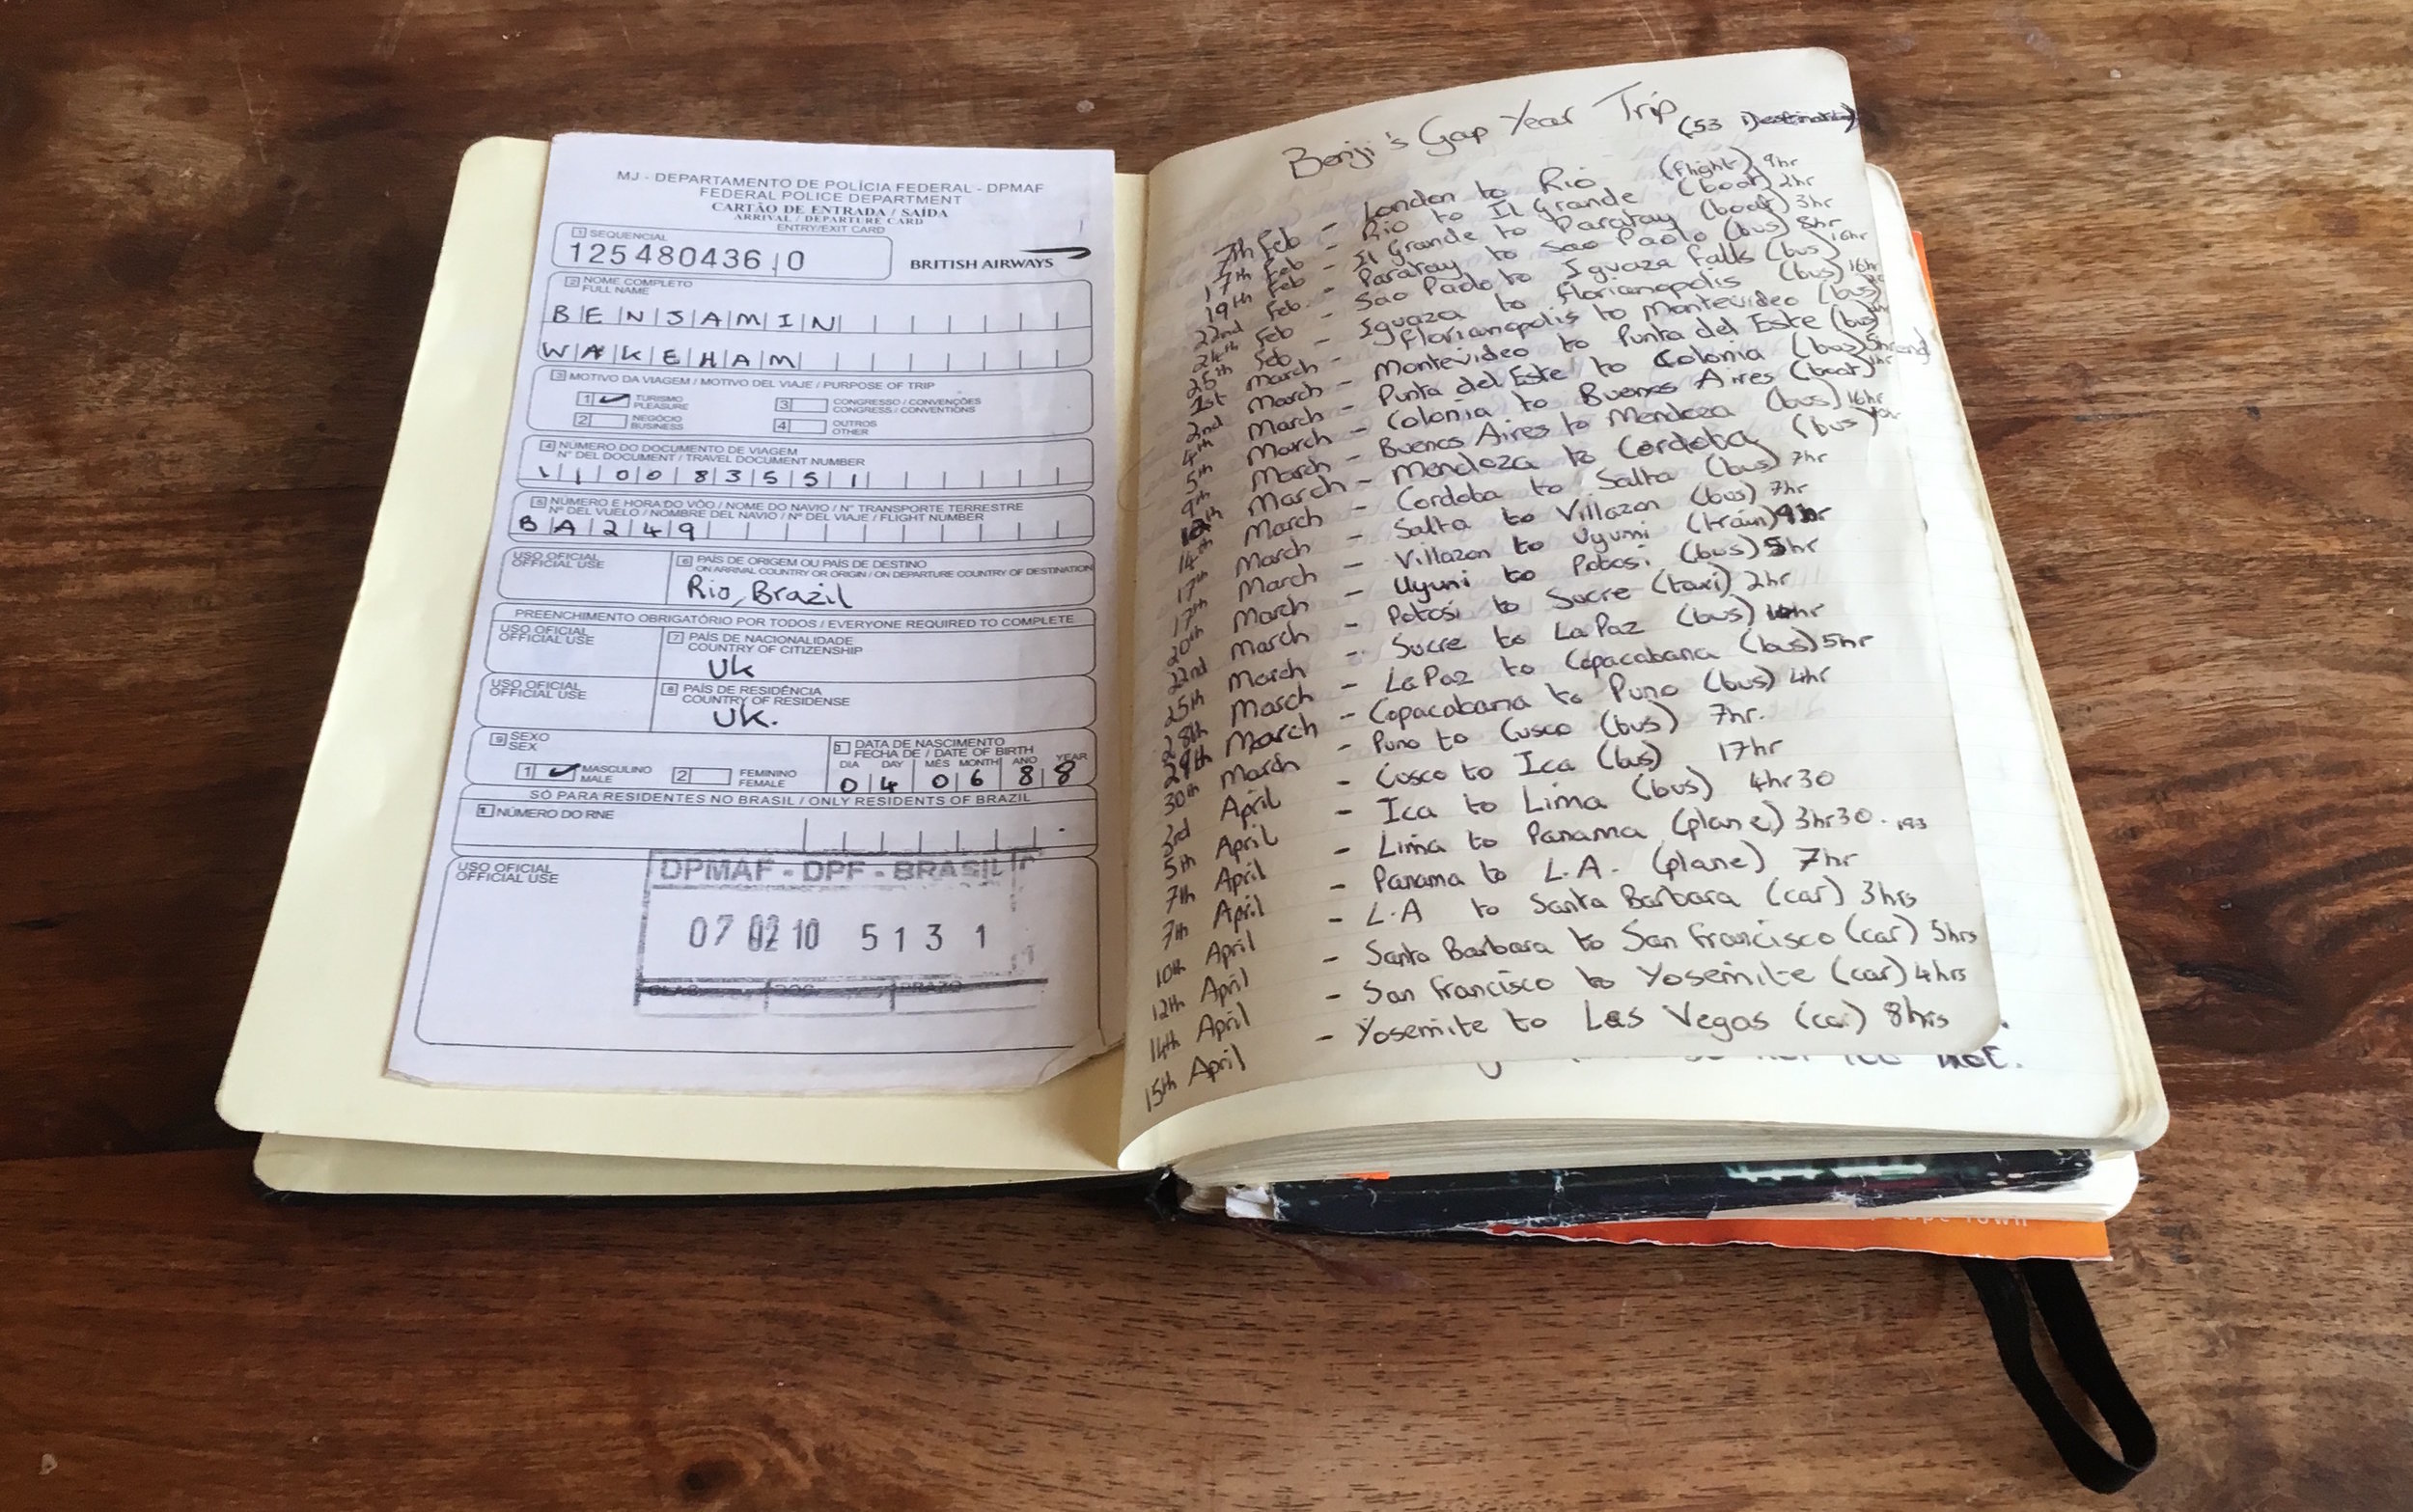 MJ - DEPARTAMENTO DE POLÍCIA FEDERAL - DPMAF
FEDERAL POLICE DEPARTMENT
CARTÃO DE ENTRADA / SAÍDA
ARRIVAL / DEPARTURE CARD
ENTRY/EXIT CARD
1 SEQUENCIAL
125480436 0
BRITISH AIRWAYS
2 NOME COMPLETO
FULL NAME
BENJAMIN
WAKEHAM
3 MOTIVO DA VIAGEM / MOTIVO DEL VIAJE / PURPOSE OF TRIP
1 TURISMO
PLEASURE
3 CONGRESSO / CONVENÇÕES
CONGRESS / CONVENTIONS
2 NEGÓCIO
BUSINESS
4 OUTROS
OTHER
4 NÚMERO DO DOCUMENTO DE VIAGEM
Nº DEL DOCUMENTO / TRAVEL DOCUMENT NUMBER
110083551
5 NÚMERO E HORA DO VÔO / NOME DO NAVIO / Nº TRANSPORTE TERRESTRE
Nº DEL VUELO / NOMBRE DEL NAVIO / Nº DEL VIAJE / FLIGHT NUMBER
BA249
USO OFICIAL
OFFICIAL USE
6 PAÍS DE ORIGEM OU PAÍS DE DESTINO
ON ARRIVAL COUNTRY OR ORIGIN / ON DEPARTURE COUNTRY OF DESTINATION
Rio, Brazil
PREENCHIMENTO OBRIGATÓRIO POR TODOS / EVERYONE REQUIRED TO COMPLETE
USO OFICIAL
OFFICIAL USE
7 PAÍS DE NACIONALIDADE
COUNTRY OF CITIZENSHIP
UK
USO OFICIAL
OFFICIAL USE
8 PAÍS DE RESIDÊNCIA
COUNTRY OF RESIDENSE
UK.
9 SEXO
SEX
1 MASCULINO
MALE
2 FEMININO
FEMALE
DATA DE NASCIMENTO
FECHA DE / DATE OF BIRTH
DIA DAY MÊS MONTH ANO YEAR
04 06 88
SÓ PARA RESIDENTES NO BRASIL / ONLY RESIDENTS OF BRAZIL
NÚMERO DO RNE
USO OFICIAL
OFFICIAL USE
DPMAF - DPF - BRASIL
07 02 10 5131
Benji's Gap Year Trip (53 Destinations)
7th Feb - London to Rio (flight) 9hr
17th Feb - Rio to Il Grande (boat) 2hr
19th Feb - Il Grande to Paratay (boat) 3hr
22nd Feb - Paratay to Sao Paolo (bus) 8hr
24th Feb - Sao Paolo to Iguaza Falls (bus) 16hr
25th Feb - Iguaza to Florianopolis (bus) 16hr
1st March - Florianopolis to Montevideo (bus)
2nd March - Montevideo to Punta del Este (bus)
4th March - Punta del Este to Colonia (bus)
5th March - Colonia to Buenos Aires (boat)
9th March - Buenos Aires to Mendoza (bus) 16hr
March - Mendoza to Cordoba (bus)
14th March - Cordoba to Salta (bus) 7hr
17th March - Salta to Villazon (bus) 7hr
17th March - Villazon to Uyuni (train) 9hr
20th March - Uyuni to Potosi (bus) 5hr
22nd March - Potosi to Sucre (taxi) 2hr
25th March - Sucre to La Paz (bus)
28th March - La Paz to Copacabana (bus) 5hr
29th March - Copacabana to Puno (bus) 4hr
30th March - Puno to Cusco (bus) 7hr.
3rd April - Cusco to Ica (bus) 17hr
5th April - Ica to Lima (bus) 4hr30
7th April - Lima to Panama (plane) 3hr30.
7th April - Panama to L.A. (plane) 7hr
10th April - L.A to Santa Barbara (car) 3hrs
12th April - Santa Barbara to San Francisco (car) 5hrs
14th April - San Francisco to Yosemite (car) 4hrs
15th April - Yosemite to Las Vegas (car) 8hrs